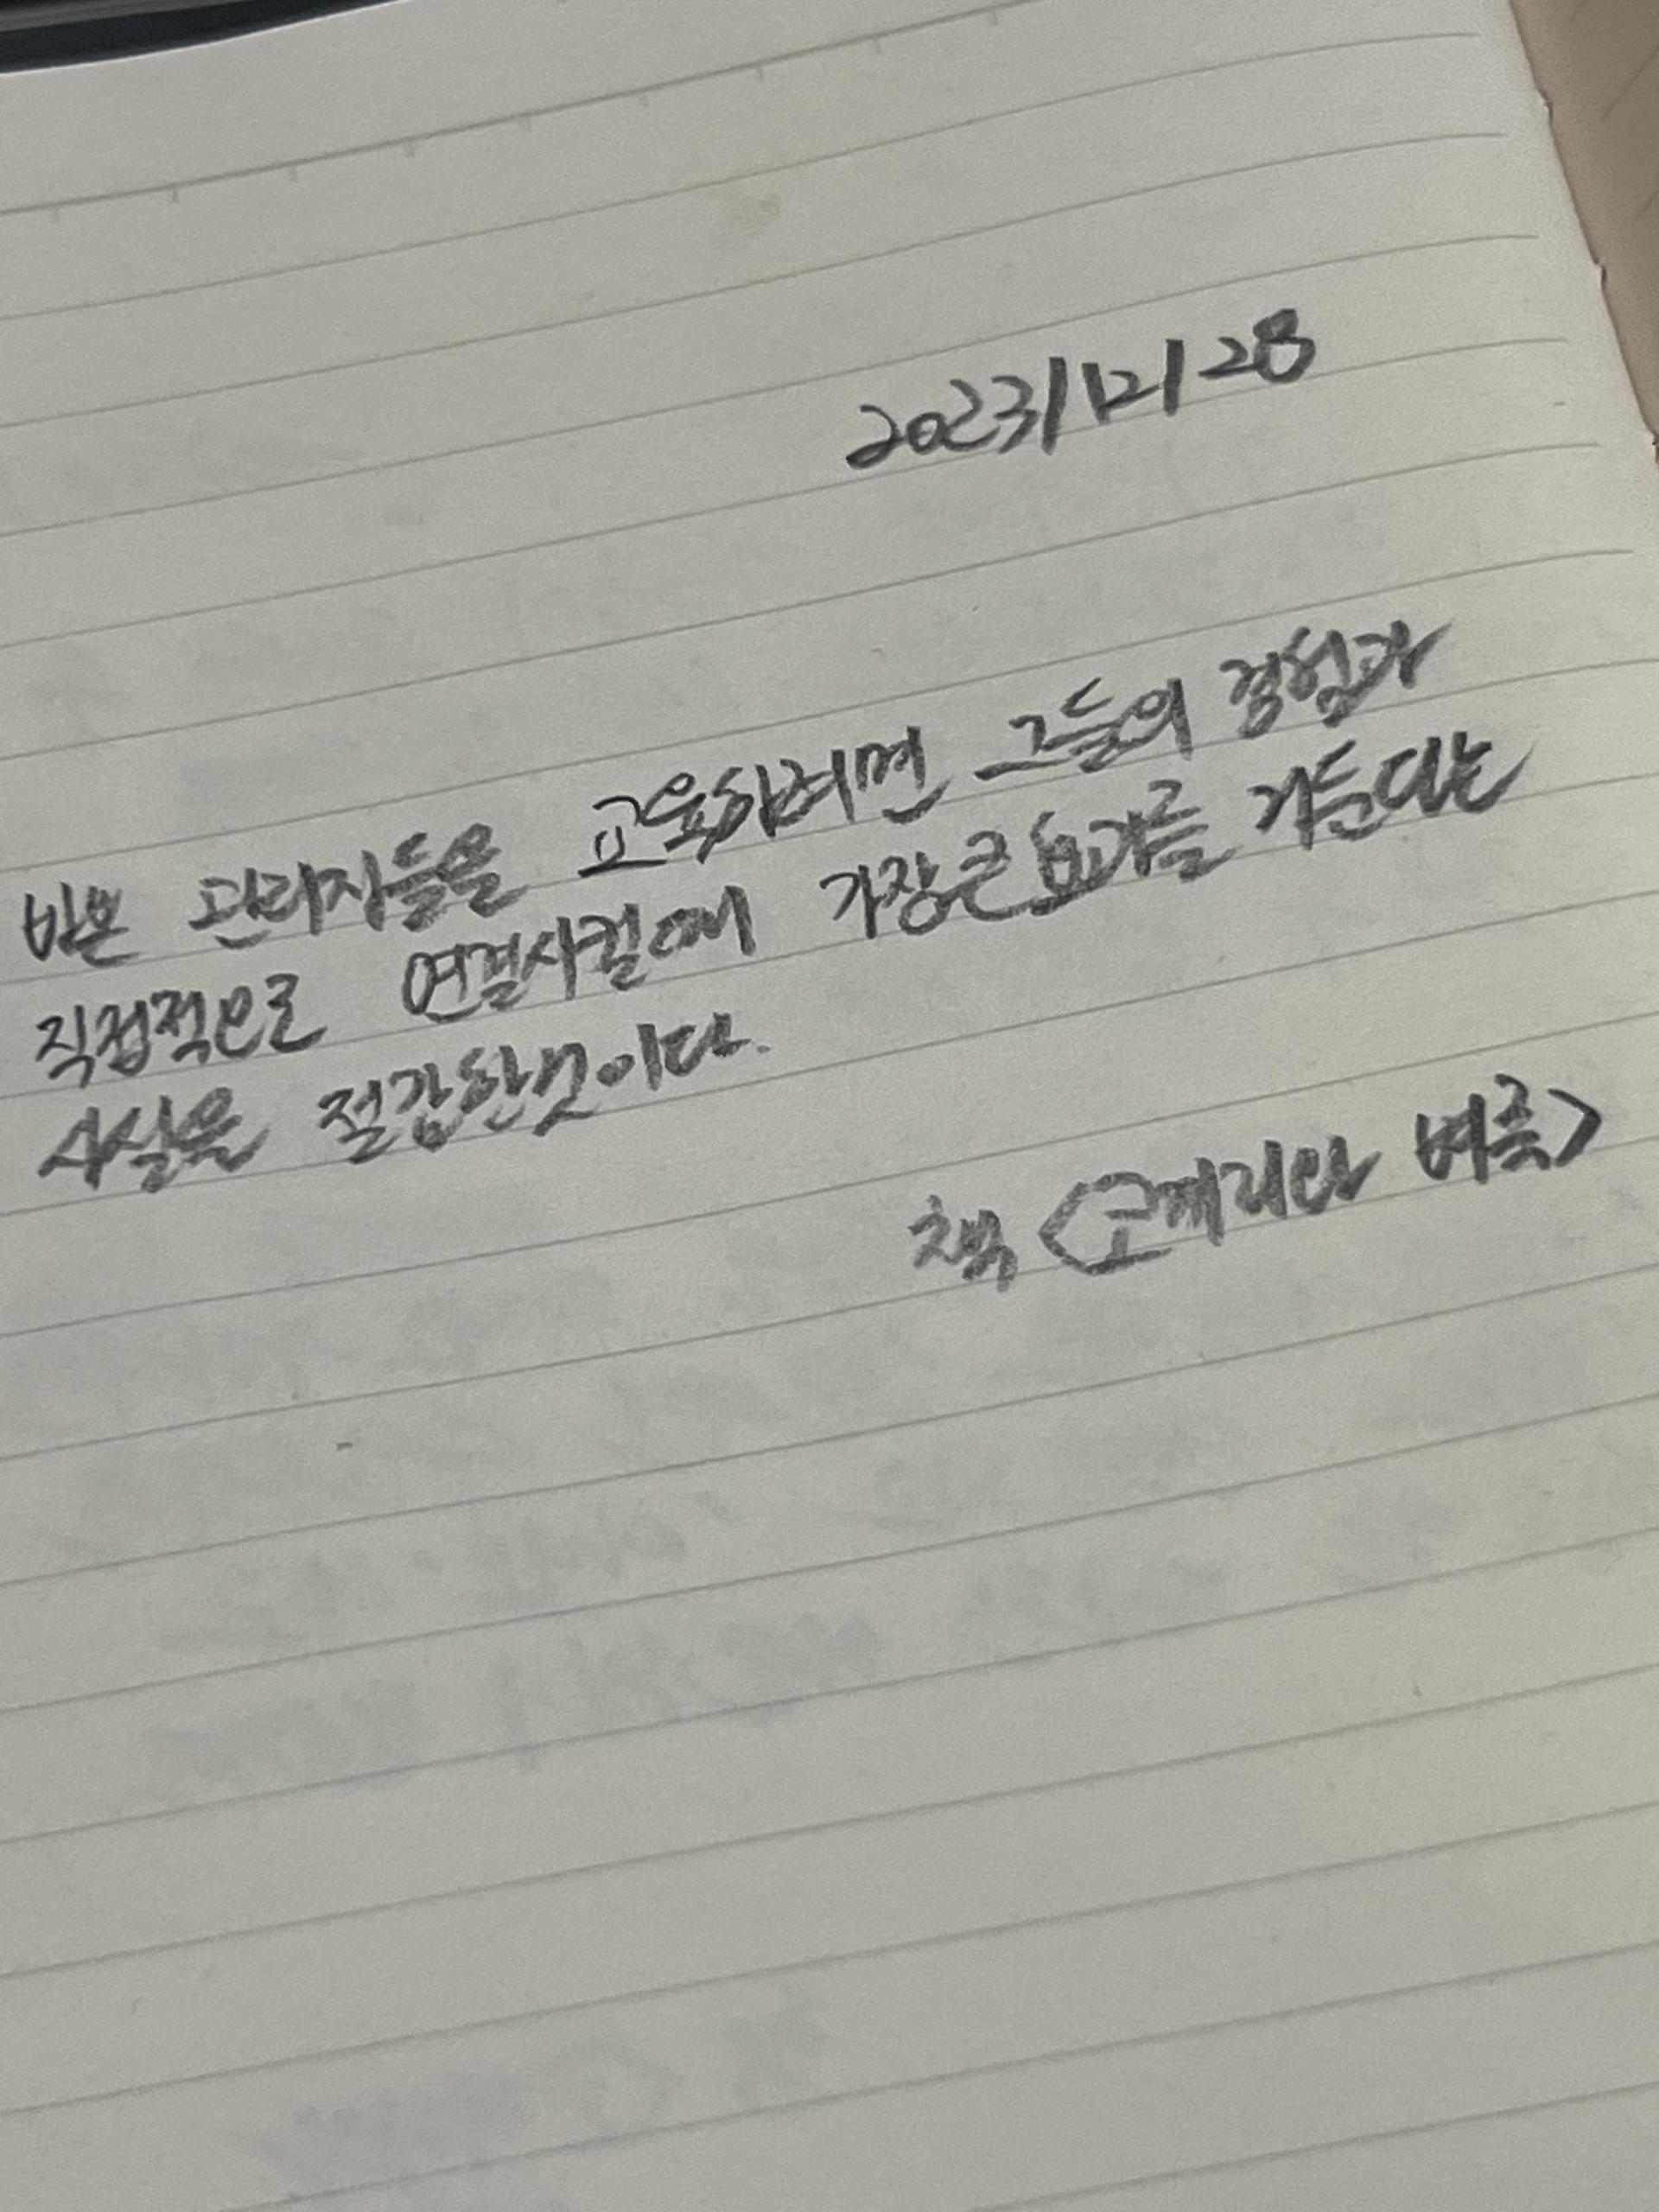 2023/12/28
바쁜 관리자들을 교육하려면 그들의 경험과
직접적으로 연결시킬때 가장큰 효과를 거둔다는
사실을 절감한것이다.
책 <코끼리와 벼룩>